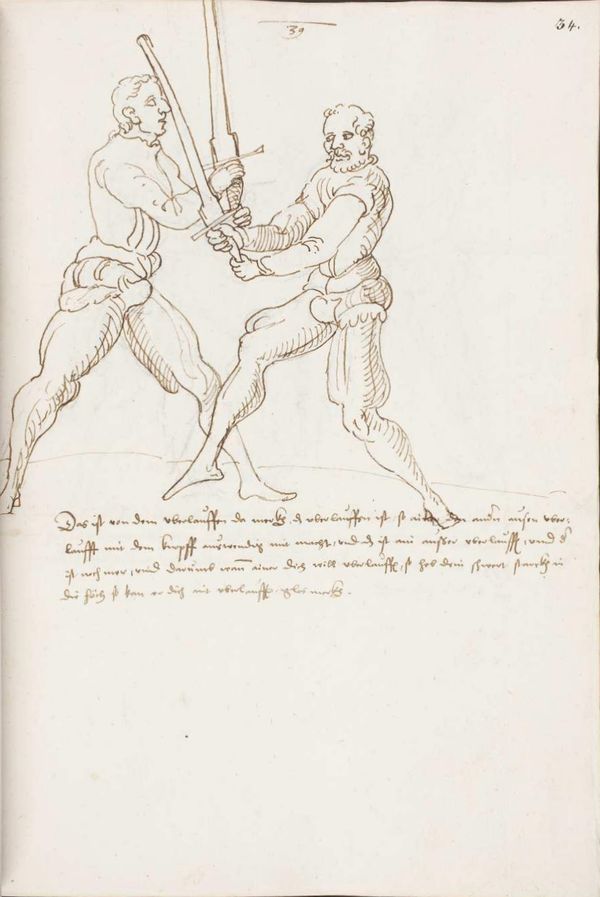 39
34.
Das ist von dem uberlauffen da merckh d uberlauffen ist so ainer den andern aussen uber-
laufft mit dem knopff auswendig mit macht, und d ist ain ausser uberlauff, und d
ist noch mer, und darumb wann ainer dich will uberlauff, so heb dein schwert starckh in
die höch so kan er dich nit uberlauff. glos merckh.